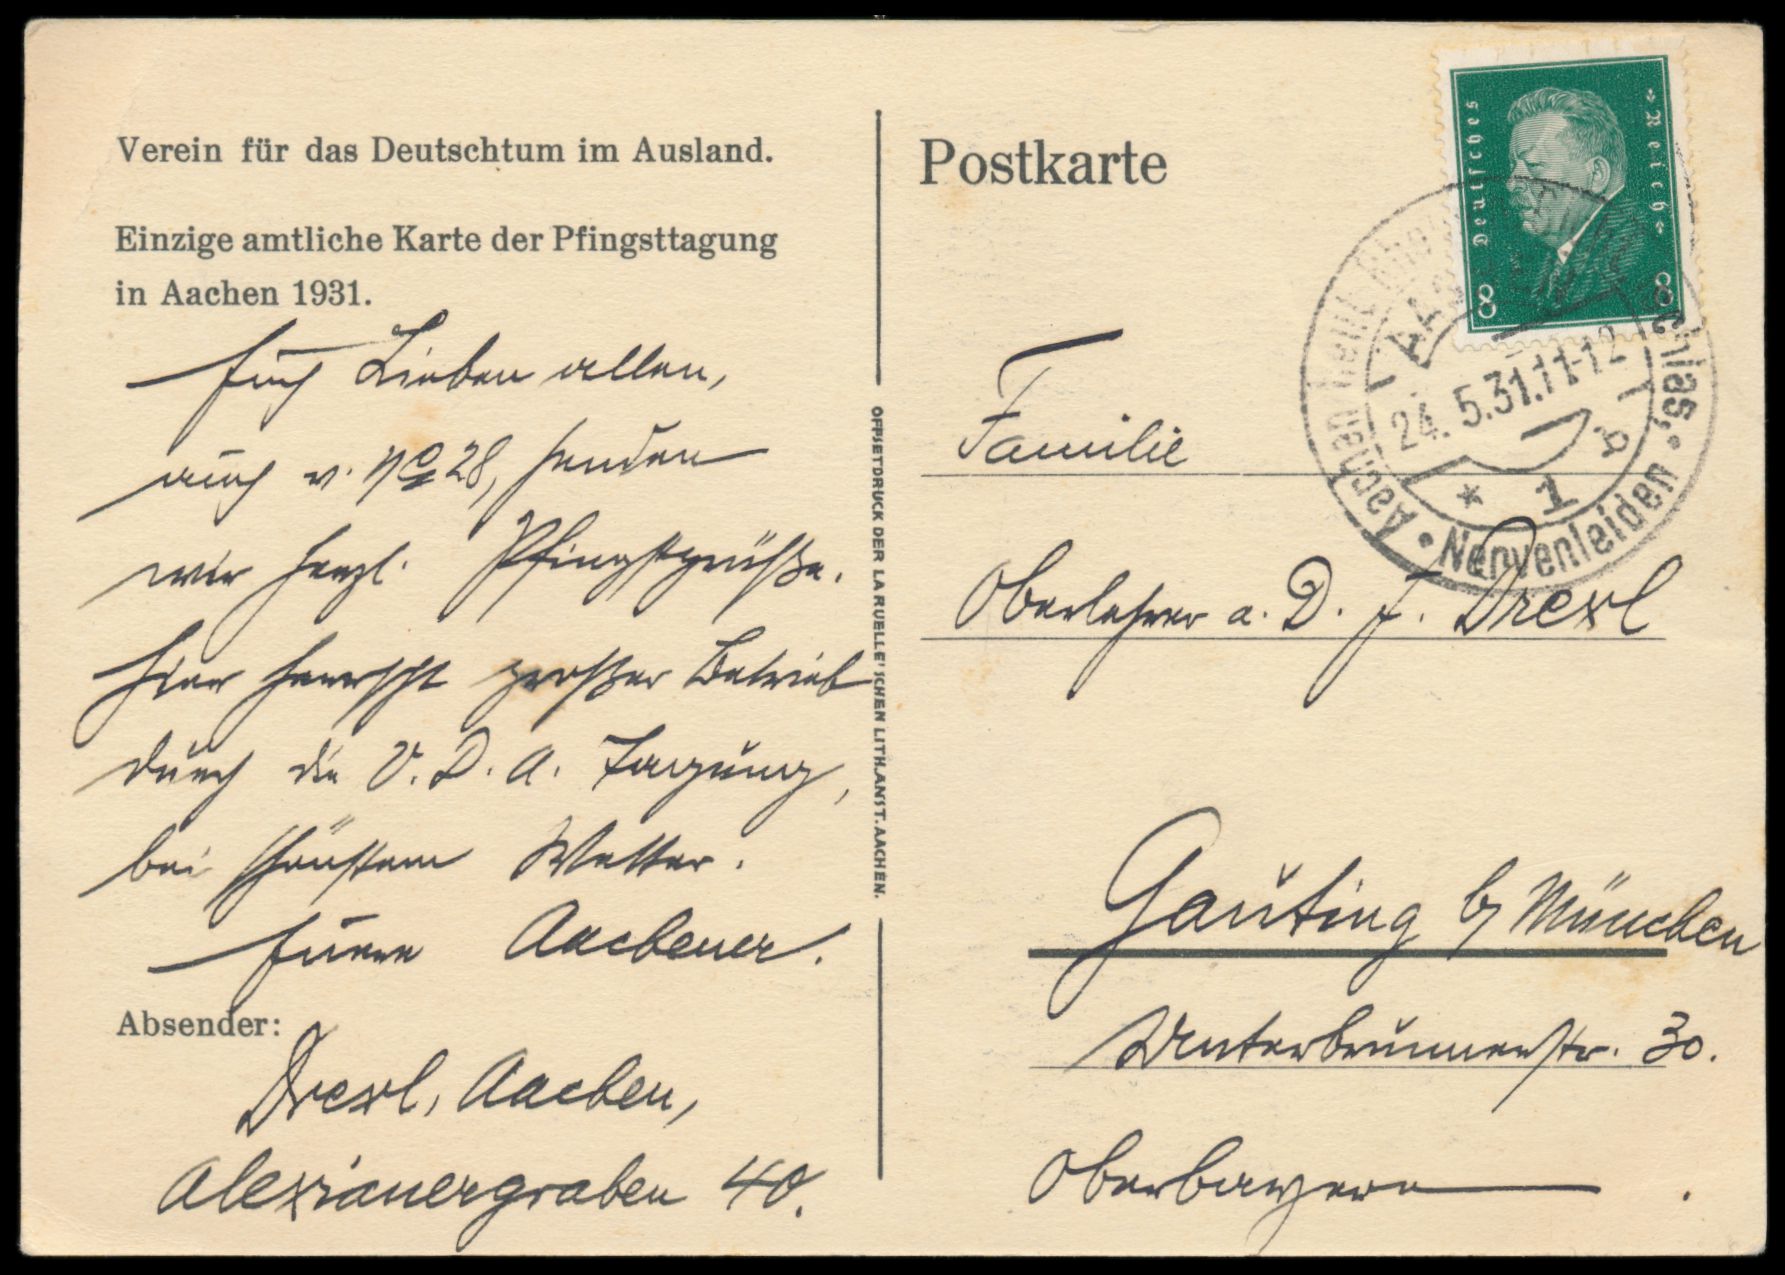 Verein für das Deutschtum im Ausland.
Einzige amtliche Karte der Pfingsttagung
in Aachen 1931.
Euch Lieben allen,
auch v. No 28, senden
wir herzl. Pfingstgrüße.
Hier herrscht großer Betrieb
durch die V. D. A. Tagung,
bei schönstem Wetter.
Euere Aachener.
Absender:
Drexl, Aachen,
Alexianergraben 40.
OFFSETDRUCK DER LA RUELLE'SCHEN LITH. ANST. AACHEN.
Postkarte
Deutsches Reich
8 8
Aachen heilt Rheuma Ischias,
Nervenleiden
AACHEN
24. 5.31.11-12
* 1 b
Familie
Oberlehrer a. D. J. Drexl
Gauting b/ München
Unterbrunnerstr. 30.
Oberbayern.